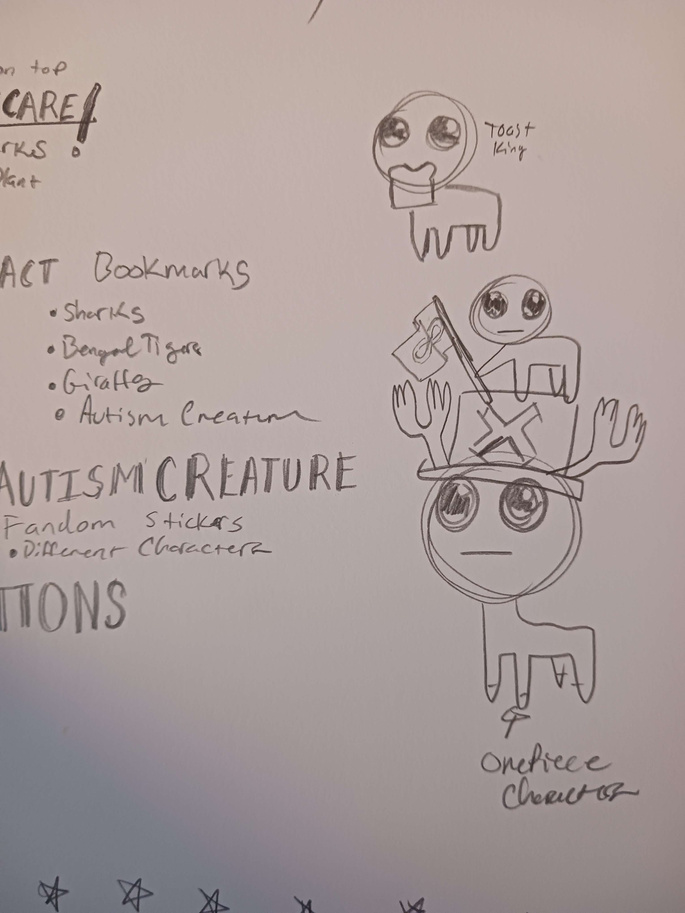 on top
CARE!
rks
Plant
ACT Bookmarks
• Sharks
• Bengal Tigers
• Giraffes
• Autism Creature
AUTISM CREATURE
Fandom Stickers
• Different Characters
TTONS
Toast
King
One Piece
Character